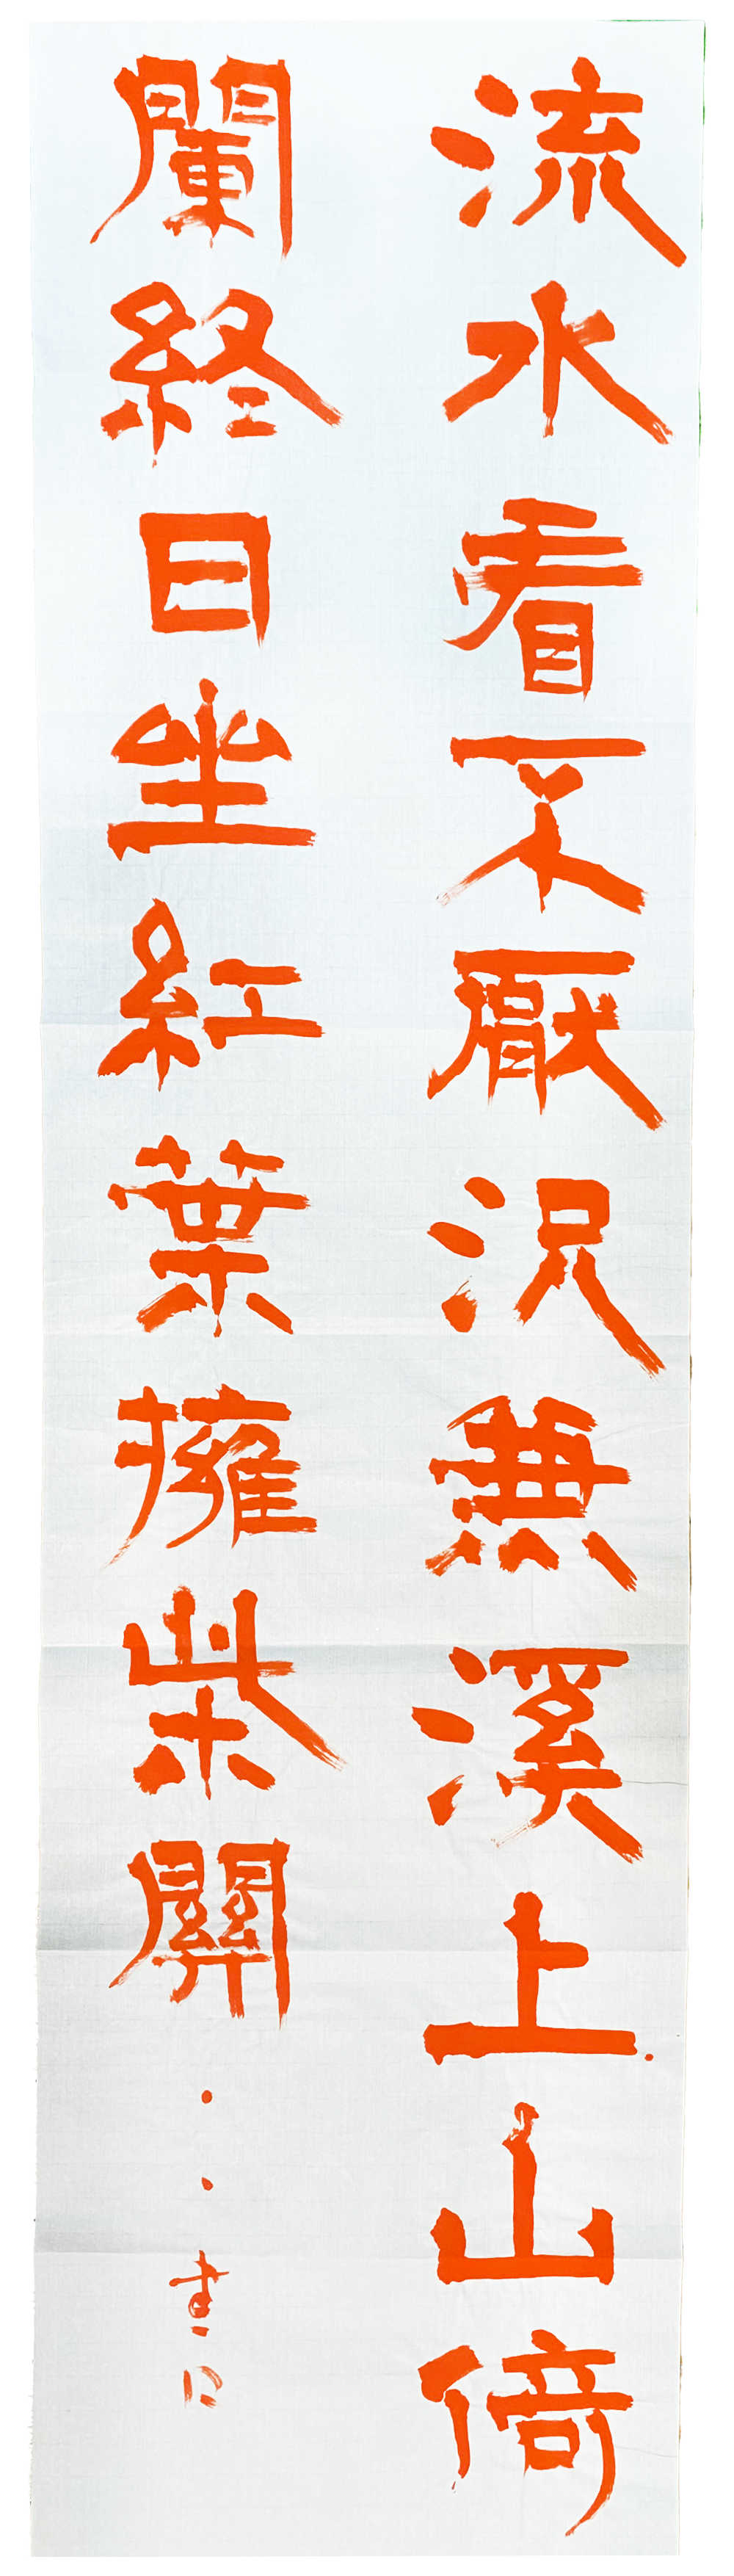 流水看不厭況兼溪上山倚
闌終日坐紅葉擁柴關
書